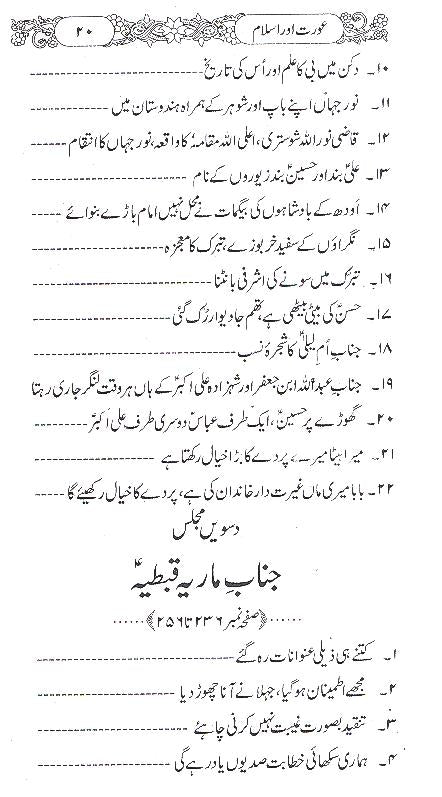 عورت اور اسلام ۲۰
۱۰۔ دکن میں بی کا علم اور اُس کی تاریخ
۱۱۔ نور جہاں اپنے باپ اور شوہر کے ہمراہ ہندوستان میں
۱۲۔ قاضی نور اللہ شوستری، اعلی اللہ مقامہٗ کا واقعہ، نور جہاں کا انتقام
۱۳۔ علیؑ بند اور حسینؑ بند زیوروں کے نام
۱۴۔ اَودھ کے بادشاہوں کی بیگمات نے محل نہیں امام باڑے بنوائے
۱۵۔ نگراؤں کے سفید خربوزے، تبرک کا معجزہ
۱۶۔ تبرک میں سونے کی اشرفی بانٹنا
۱۷۔ حسنؑ کی بیٹی بیٹھی ہے، تھم جا دیوار رُک گئی
۱۸۔ جنابِ اُمِ لیلیٰؑ کا شجرۂ نسب
۱۹۔ جنابِ عبداللہ ابنِ جعفر اور شہزادہ علی اکبرؑ کے ہاں ہر وقت لنگر جاری رہتا
۲۰۔ گھوڑے پر حسینؑ، ایک طرف عباسؑ دوسری طرف علی اکبرؑ
۲۱۔ میرا بیٹا میرے پردے کا بڑا خیال رکھتا ہے
۲۲۔ بابا میری ماں غیرت دار خاندان کی ہے، پردے کا خیال رکھیئے گا
دسویں مجلس
جنابِ ماریہ قبطیہؑ
﴿صفحہ نمبر ۲۳۶ تا ۲۵۶﴾
۱۔ کتنے ہی ذیلی عنوانات رہ گئے
۲۔ مجھے اطمینان ہو گیا، جہلا نے آنا چھوڑ دیا
۳۔ تنقید بصورت غیبت نہیں کرنی چاہئے
۴۔ ہماری سکھائی خطابت صدیوں یاد رہے گی